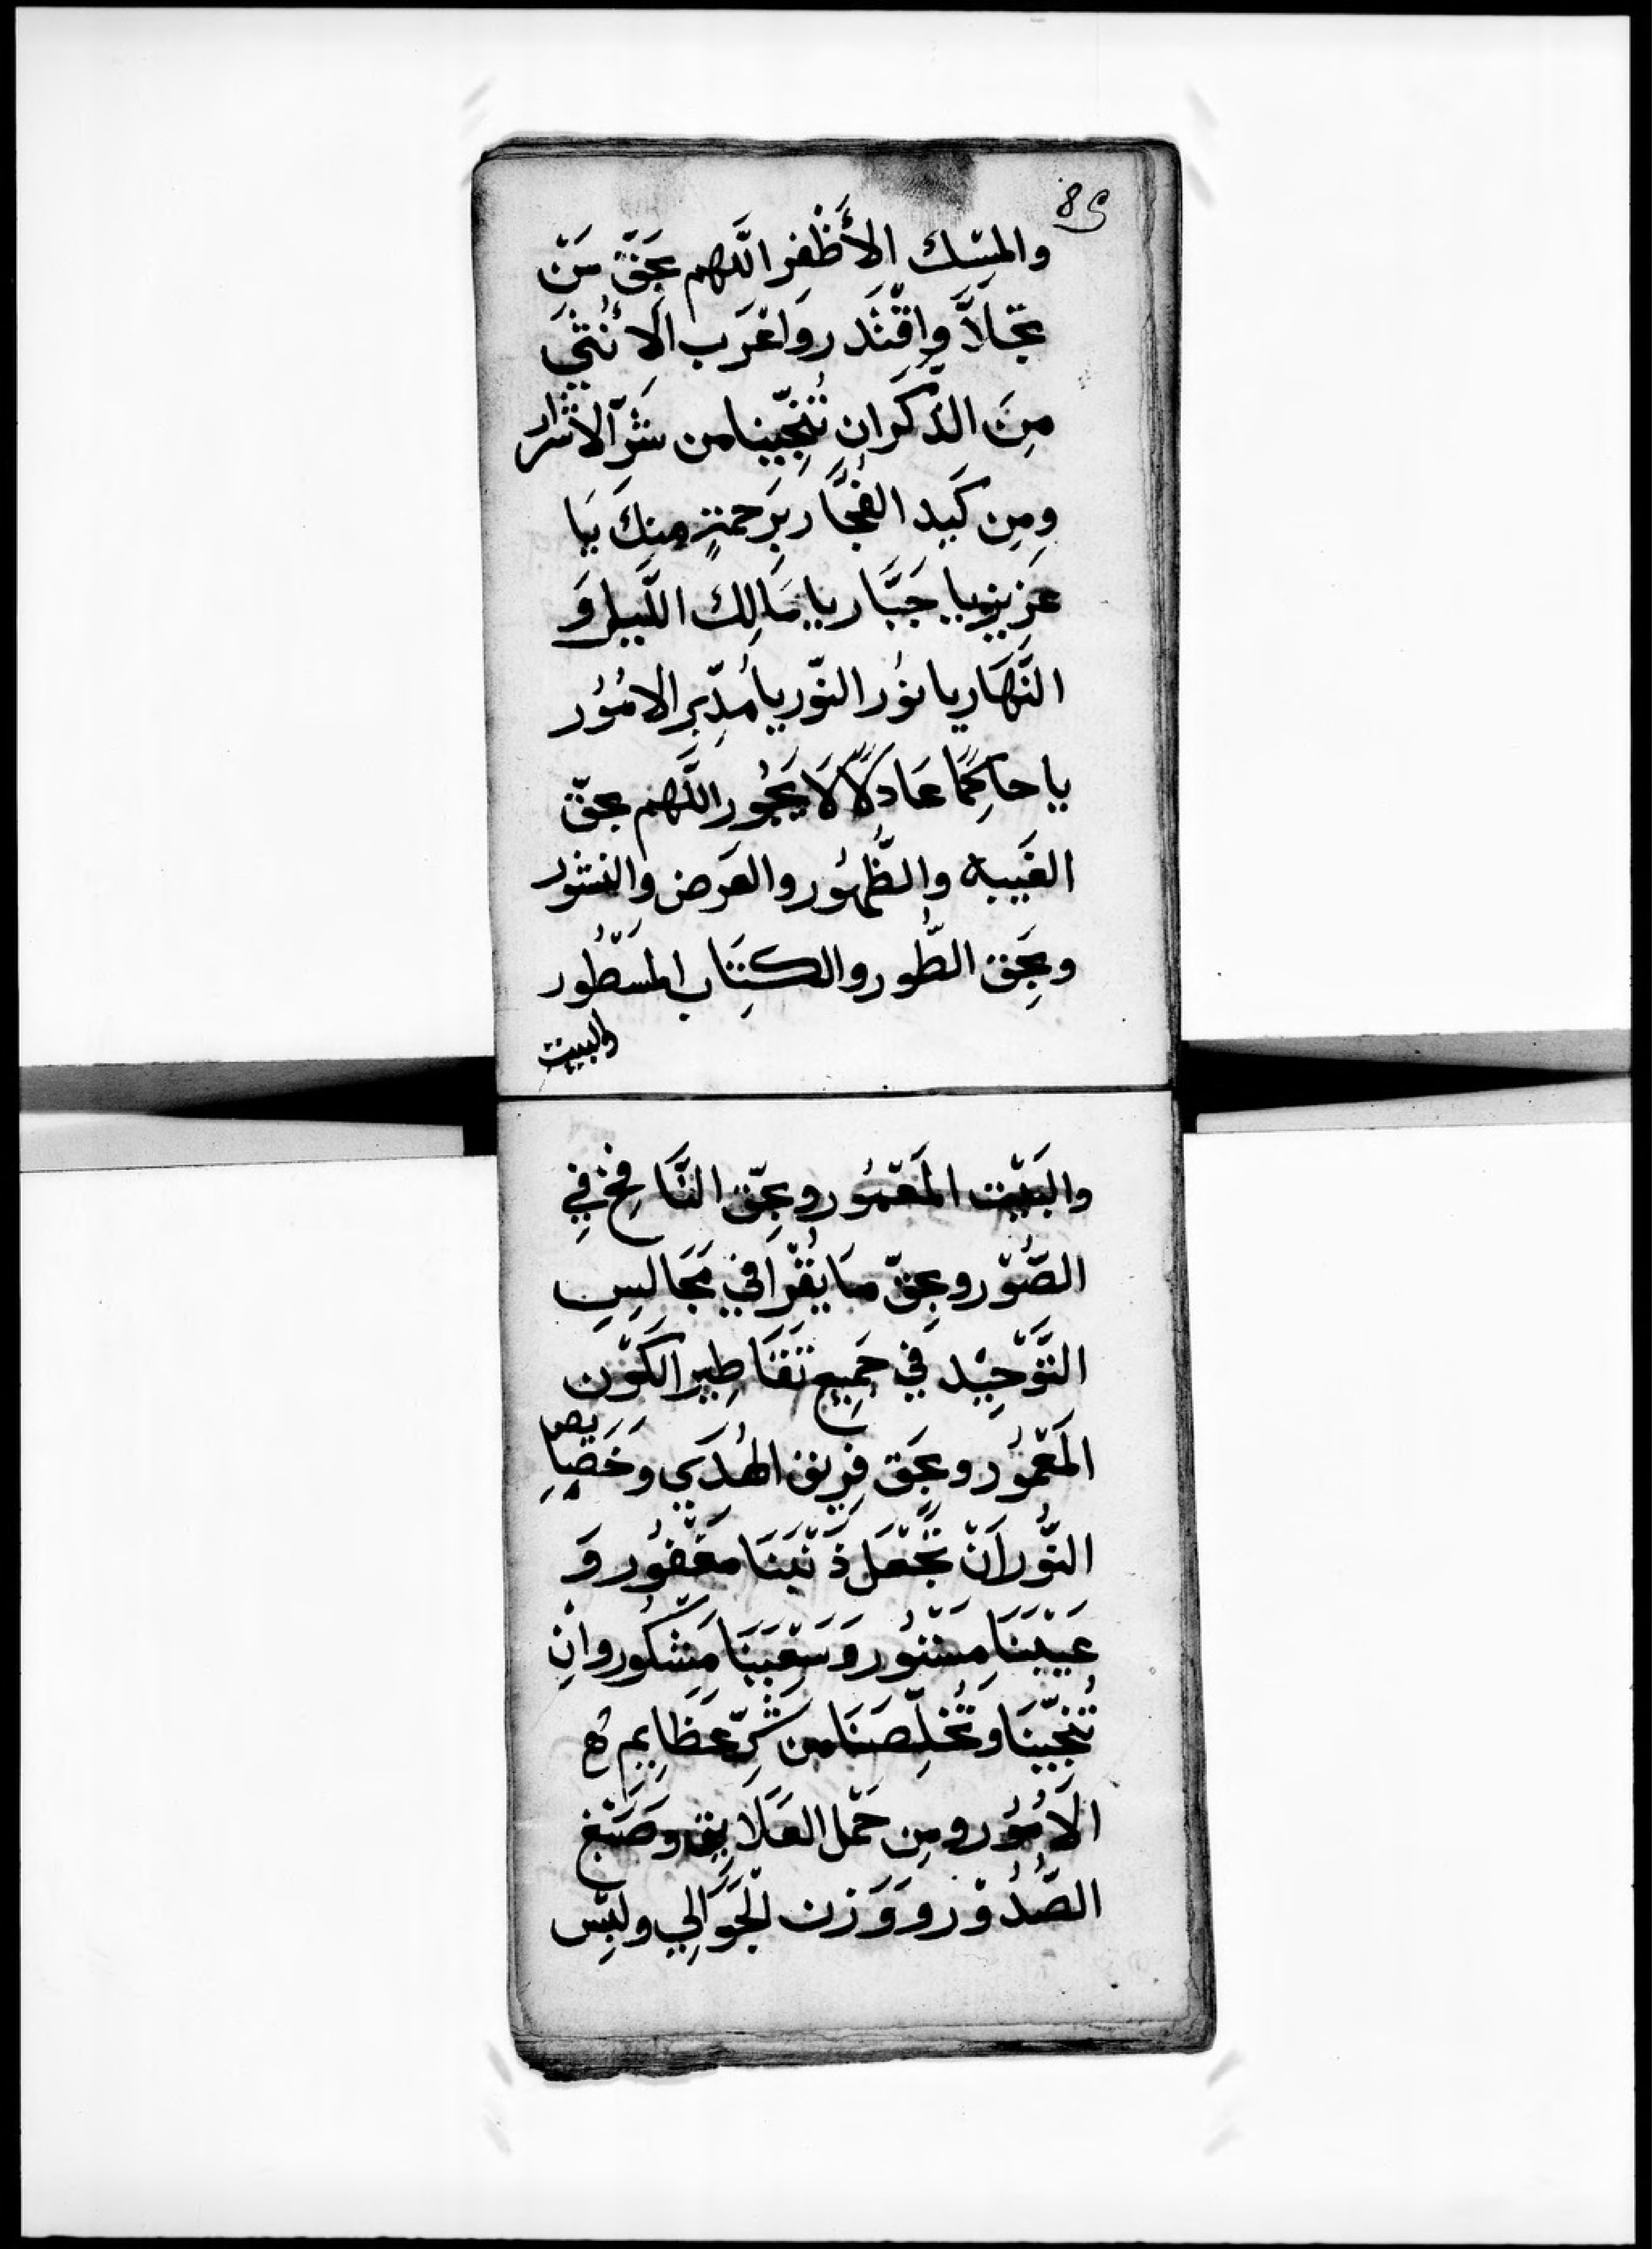 89
والمِسْك الأَظْفِر اللّهم بحَقّ مَنْ
تجَلاَّ واقْتَدَر واعْرَب الأُنثَي
مِنَ الذّكَرانِ تُنَجّينا من شَرّ الاشْرار
ومِن كَيد الفُجَّار بِرَحمةٍ مِنكَ يَا
عَزِيز يا جَبَّار يا مَالِك اللَّيل وَ
النَّهَار يا نُور النّور يا مُدّبِر الامُوُر
يا حاكِمًا عَادلًا لَا يَجُور اللَّهم بحقّ
الغَيبه والظُّهُور والعَرض والنشُور
وبحَق الطُّور والكِتَاب المَسْطُور
والبيت
والبَيْت المَعْمُور وبحَقّ النَّافِخ فِي
الصُّوْر وبحقّ مَا يُقْرا في مَجَالِسِ
التَّوْحِيْد في جَمِيع تَقَاطِير الكَوْن
المَعْمُور وبحَق فِريق الهُدَي وخَصَايص
النُّور اَنْ تَجْعَل ذَنْبَنَا مَغْفُور وَ
عَيْبَنَا مَسْتُور وَسَعْيَنَا مَشكُور وانْ
تُنَجّينَا وتُخَلِّصَنَا من شَرّ عَظَايِم
الاُمُوُر ومِن حَمْل العَلَايِق وصَبْغ
الصُّدُوْر ووَزن الجَوَالِي ولبِْس